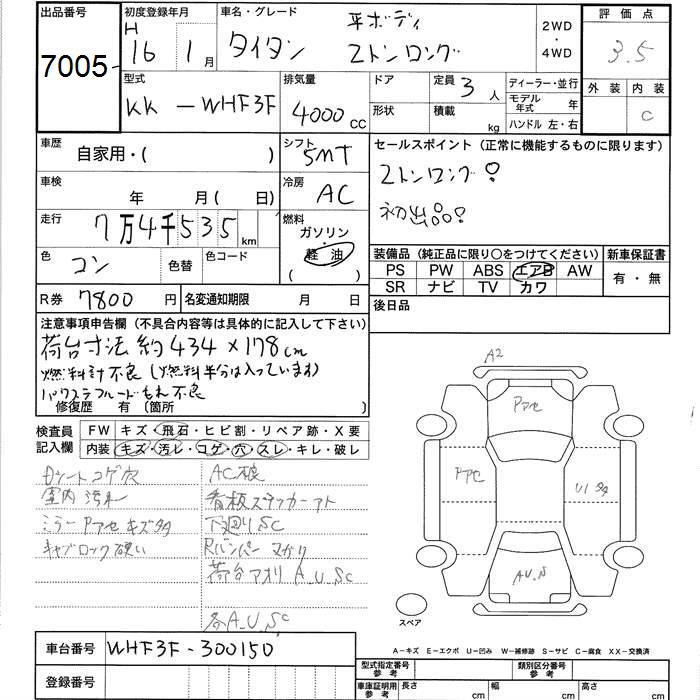 出品番号 初度登録年月 車名・グレード 平ボディ 2WD ・ 4WD 評価点
7005 H 16 1月 タイタン 2トンロング 3.5
型式 排気量 ドア 定員 3人 ディーラー・並行 外装 内装
KK-WHF3F 4000cc 形状 積載 kg モデル年式 年 C
ハンドル 左・右
車歴 自家用・( ) シフト 5MT セールスポイント(正常に機能するものに限ります)
車検 年 月( 日) 冷房 AC 2トンロング!
走行 7万4千535km 燃料 ガソリン・軽油 ( ) 初出品!
色 コン 色替 色コード 装備品(純正品に限り〇をつけてください) 新車保証書
PS PW ABS エアB AW 有・無
SR ナビ TV カワ
R券 7800円 名変通知期限 月 日 後日品
注意事項申告欄(不具合内容等は具体的に記入して下さい)
荷台寸法 約434×178cm
燃料計不良(燃料半分は入っています)
パワステフルードもれ不良
修復歴 有(箇所 )
検査員記入欄 FW キズ・飛石・ヒビ割・リペア跡・X要
内装 キズ・汚レ・コゲ・穴・スレ・キレ・破レ
Dシートコゲ穴 AC
室内汚れ 看板ステッカーアト
ミラーPアセキズタ 下廻りSC
キャブロック硬い Rバンパーマガリ
荷台アオリ A.U.SC
各A.U.SC
A2
Pアセ
Pアセ
U1
A.U.S
スペア
A-キズ E-エクボ U-凹み W-補修跡 S-サビ C-腐食 XX-交換済
車台番号 WHF3F-300150
登録番号
型式指定番号 参考 類別区分番号 参考
車庫証明用 参考 長さ cm 幅 cm 高さ cm